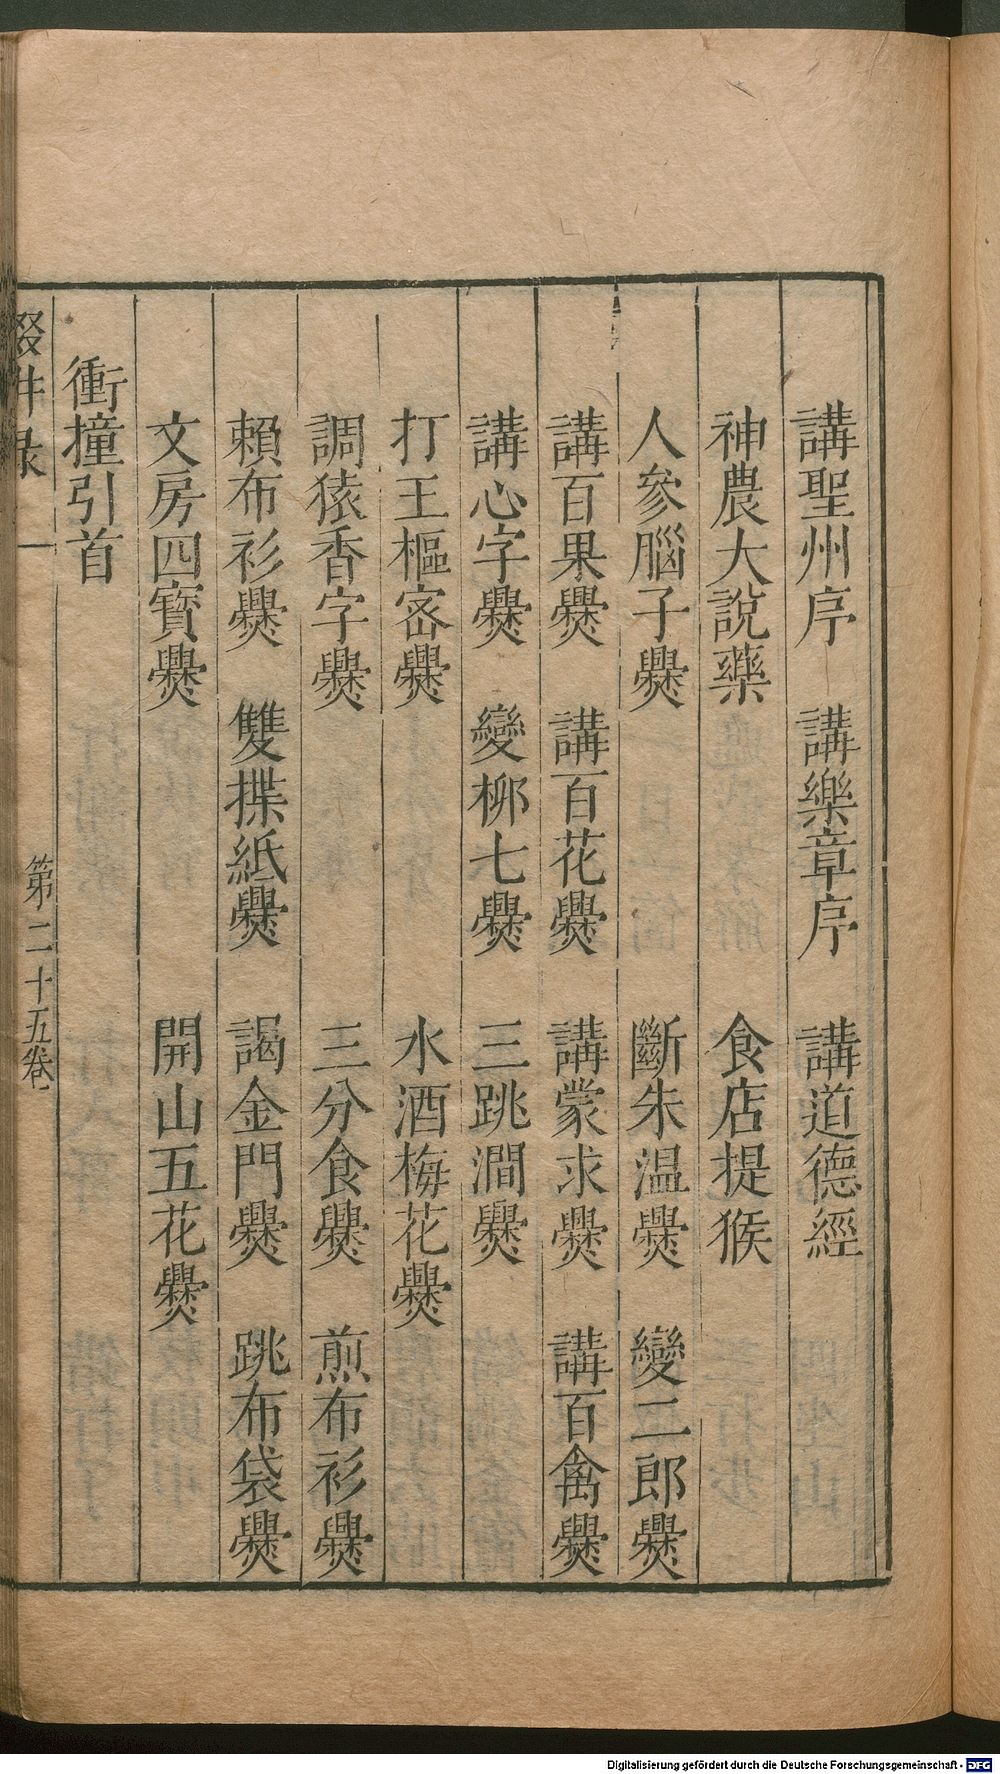 講聖州序　講樂章序　講道德經
神農大說藥　食店提猴
人參腦子爨　斷朱溫爨　變二郎爨
講百果爨　講百花爨　講蒙求爨　講百禽爨
講心字爨　變柳七爨　三跳澗爨
打王樞宻爨　水酒梅花爨
調猿香字爨　三分食爨　煎布衫爨
賴布衫爨　雙揲紙爨　謁金門爨　跳布袋爨
文房四寳爨　開山五花爨
衝撞引首
第二十五卷
Digitalisierung gefördert durch die Deutsche Forschungsgemeinschaft - DFG